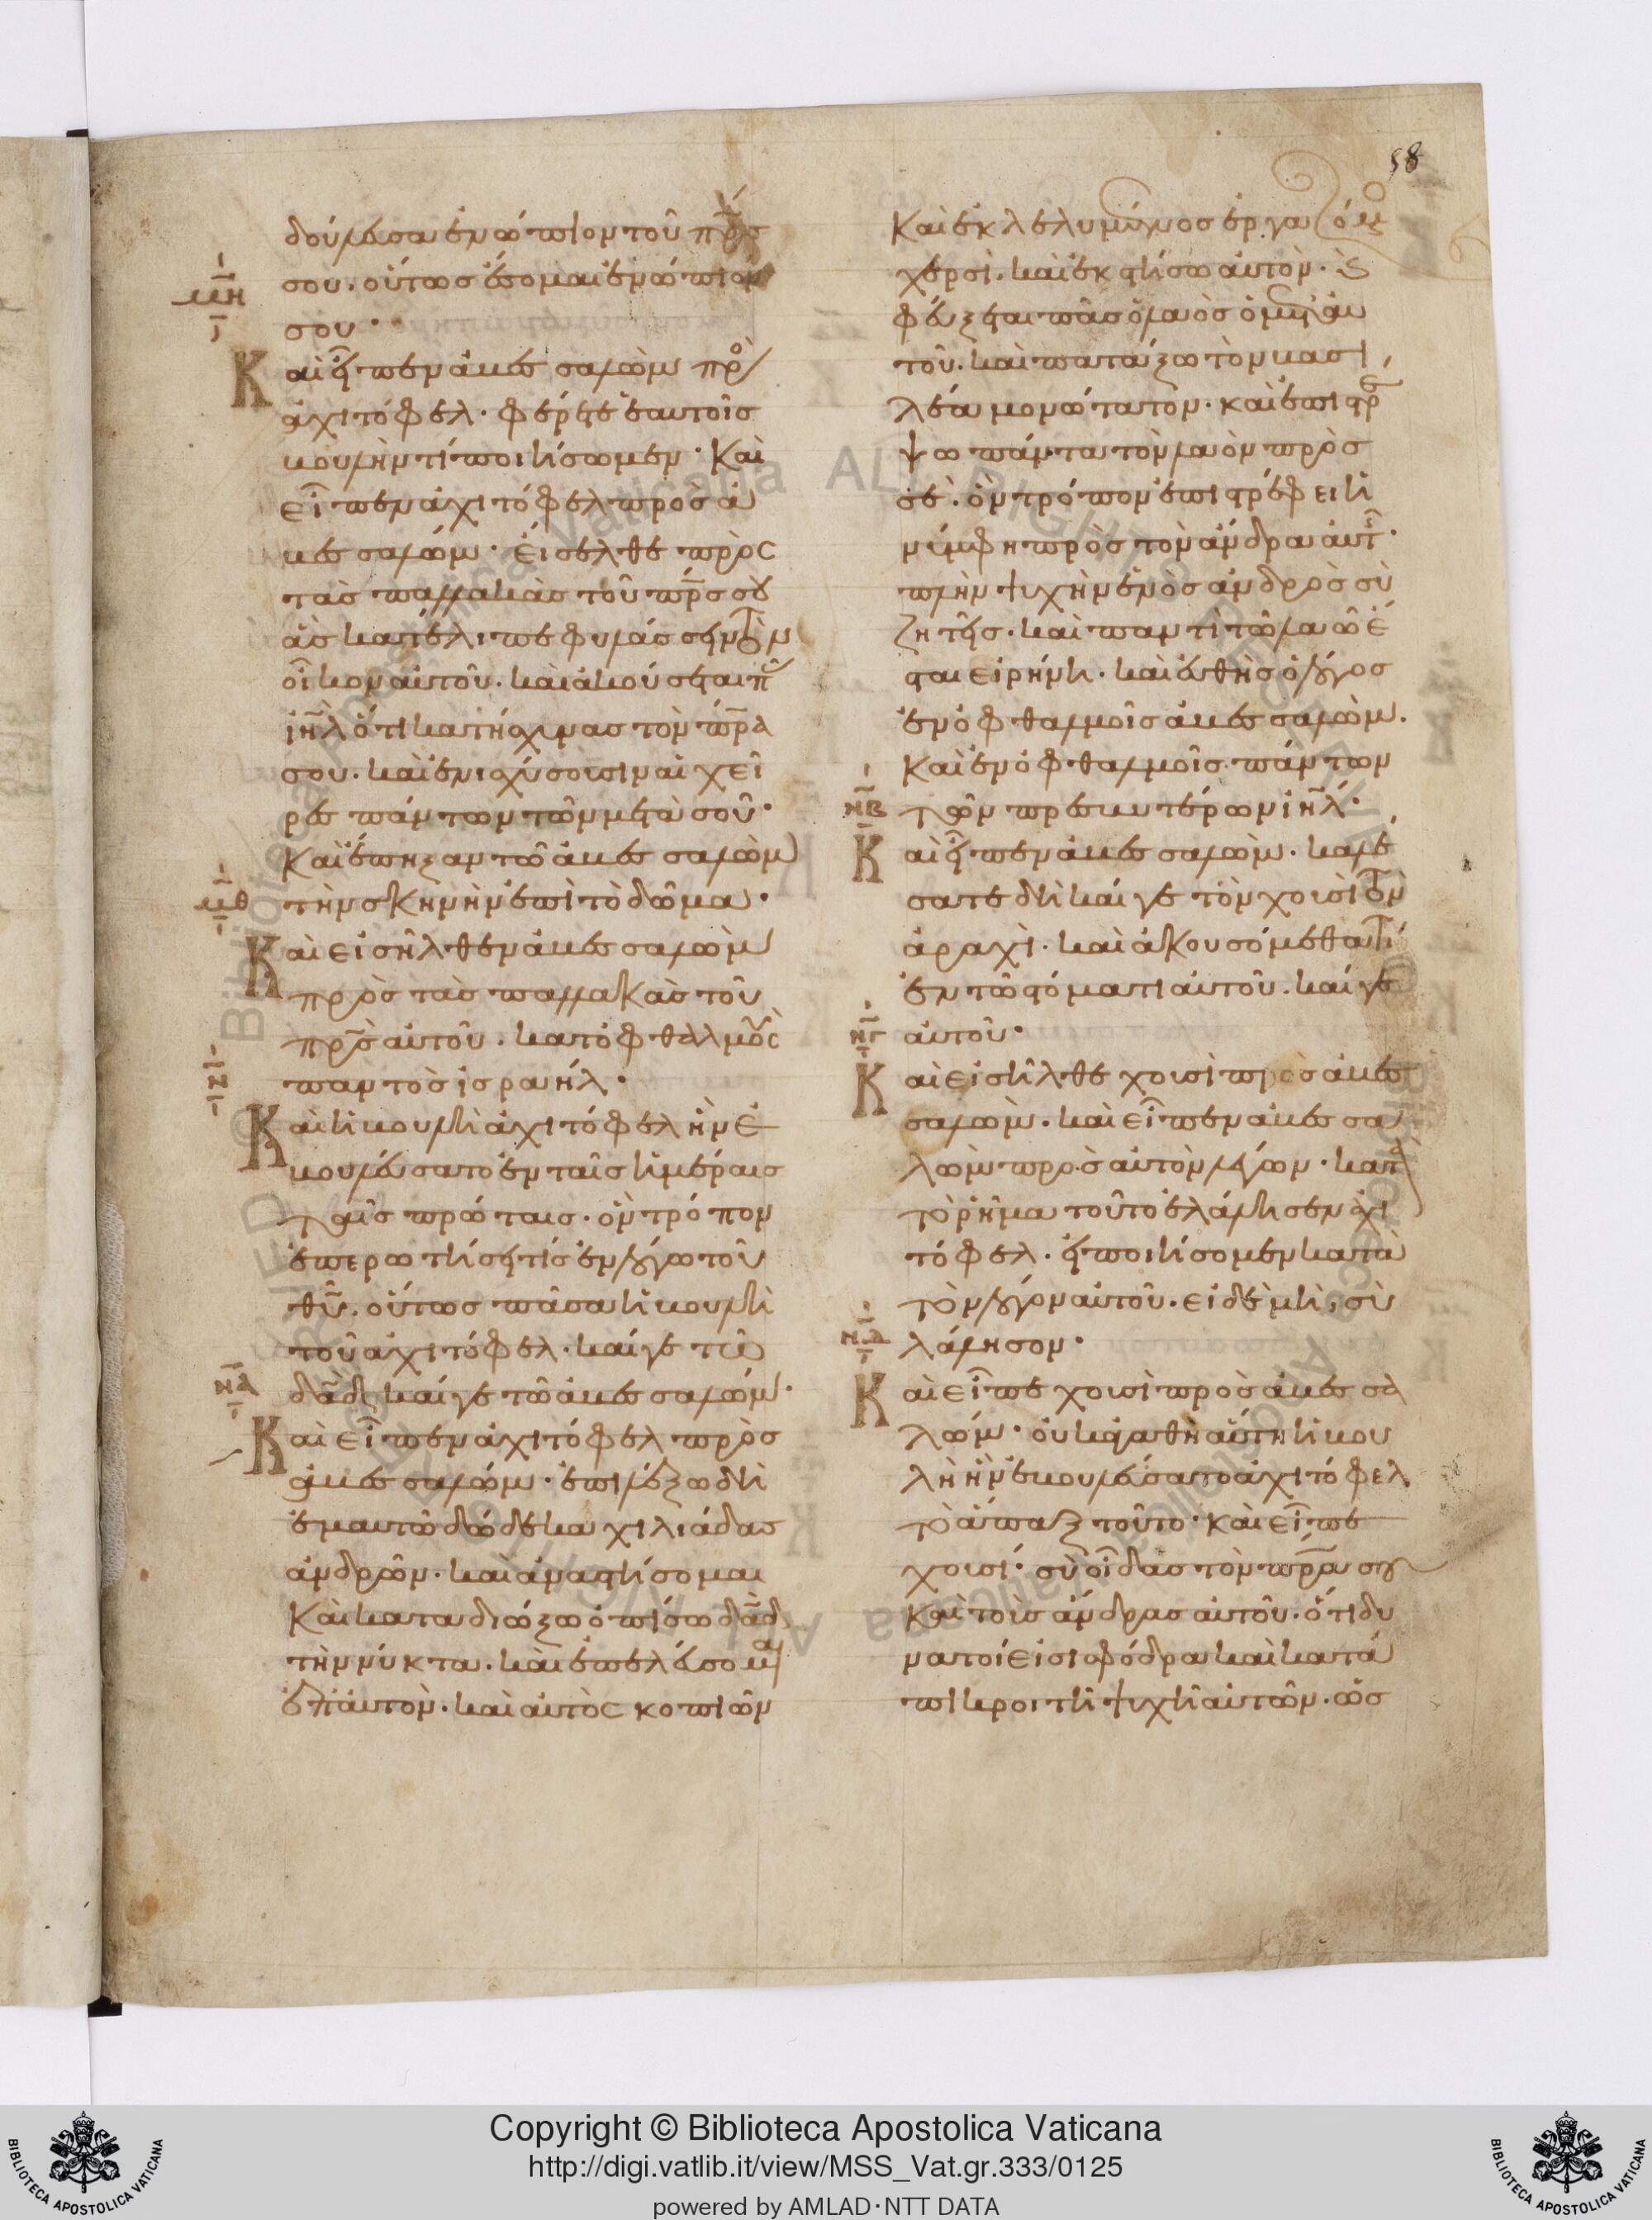 58
δούλευσα ἐνώπιον τοῦ πρ̅ς
σου. οὕτως ἔσομαι ἐνώπιον
μη
σου·
Καὶ εἶπεν ἀβεσσαλὼμ πρὸ
ἀχιτόφελ. φέρετε ἑαυτοῖς
βουλὴν τί ποιήσωμεν· Καὶ
εἶπεν ἀχιτόφελ πρὸς ἀ
βεσσαλώμ· εἴσελθε πρὸς
τὰς παλλακὰς τοῦ πρ̅ς σου
ἃς κατέλιπε φυλάσσειν τὸν
οἶκον αὐτοῦ. καὶ ἀκούσεται π
ιη̅λ ὅτι κατήσχυνας τὸν πρ̅α
σου. καὶ ἐνισχύσουσιν αἱ χεῖ
ρες πάντων τῶν μετὰ σοῦ·
Καὶ ἔπηξαν τῶ ἀβεσσαλὼμ
μθ
τὴν σκηνὴν ἐπὶ τὸ δῶμα·
Καὶ εἰσῆλθεν ἀβεσσαλὼμ
πρὸς τὰς παλλακὰς τοῦ
πρ̅ς αὐτοῦ. κατ' ὀφθαλμοὺς
ν
παντὸς ἰσραήλ·
Καὶ ἡ βουλὴ ἀχιτόφελ ἣν ἐ
βουλεύσατο ἐν ταῖς ἡμέραις
ταῖς πρώταις. ὃν τρόπον
ἐπερωτήσει τίς ἐν λόγω τοῦ
θυ̅. οὕτως πᾶσα ἡ βουλὴ
τοῦ ἀχιτόφελ. καί γε τῶ
να
δα̅δ καί γε τῶ ἀβεσσαλώμ·
Καὶ εἶπεν ἀχιτόφελ πρὸς
ἀβεσσαλώμ· ἐπιλέξω δὴ
ἐμαυτῶ δώδεκα χιλιάδας
ἀνδρῶν. καὶ ἀναστήσομαι
Καὶ καταδιώξω ὀπίσω δα̅δ
τὴν νύκτα. καὶ ἐπελεύσομαι
ἐπ' αὐτὸν. καὶ αὐτὸς κοπιῶν
Καὶ ἐκλελυμένος
χερσὶ. καὶ ἐκστήσω αὐτὸν. καὶ
φεύξεται πᾶς ὁ λαὸς ὁ μετ' αὐ
τοῦ. καὶ πατάξω τὸν βασι
λέα μονώτατον. καὶ ἐπιστρε
ψω πάντα τὸν λαὸν πρὸς
σὲ. ὃν τρόπον ἐπιστρέφει ἡ
νύμφη πρὸς τὸν ἄνδρα αὐτῆς·
πλὴν ψυχὴν ἑνὸς ἀνδρὸς σὺ
ζητεῖς. καὶ παντὶ τῶ λαῶ ἔ
σται εἰρήνη. καὶ εὐθὴς ὁ λόγος
ἐν ὀφθαλμοῖς ἀβεσσαλὼμ.
Καὶ ἐν ὀφθαλμοῖς πάντων
νβ
τῶν πρεσβυτέρων ιη̅λ·
Καὶ εἶπεν ἀβεσσαλὼμ. καλέ
σατε δὴ καί γε τὸν χουσὶ τὸν
ἀραχὶ. καὶ ἀκουσόμεθα τί
ἐν τῶ στόματι αὐτοῦ. καί γε
νγ
αὐτοῦ·
Καὶ εἰσῆλθε χουσὶ πρὸς ἀβεσ
σαλὼμ. καὶ εἶπεν ἀβεσσα
λὼμ πρὸς αὐτὸν λέγων· κατὰ
τὸ ῥῆμα τοῦτο ἐλάλησεν ἀχι
τόφελ. εἰ ποιήσομεν κατὰ
τὸν λόγον αὐτοῦ. εἰ δὲ μὴ, σὺ
νδ
λάλησον·
Καὶ εἶπε χουσὶ πρὸς ἀβεσσα
λώμ· οὐκ ἀγαθὴ αὕτη ἡ βου
λὴ ἣν ἐβουλεύσατο ἀχιτόφελ
τὸ ἅπαξ τοῦτο· Καὶ εἶπε
χουσί· σὺ οἶδας τὸν πρ̅α σου
Καὶ τοὺς ἄνδρας αὐτοῦ. ὅτι δυ
νατοί εἰσι σφόδρα καὶ κατά
πικροι τῆ ψυχῆ αὐτῶν. ὡς
Copyright © Biblioteca Apostolica Vaticana
http://digi.vatlib.it/view/MSS_Vat.gr.333/0125
powered by AMLAD·NTT DATA
BIBLIOTECA APOSTOLICA VATICANA
BIBLIOTECA APOSTOLICA VATICANA